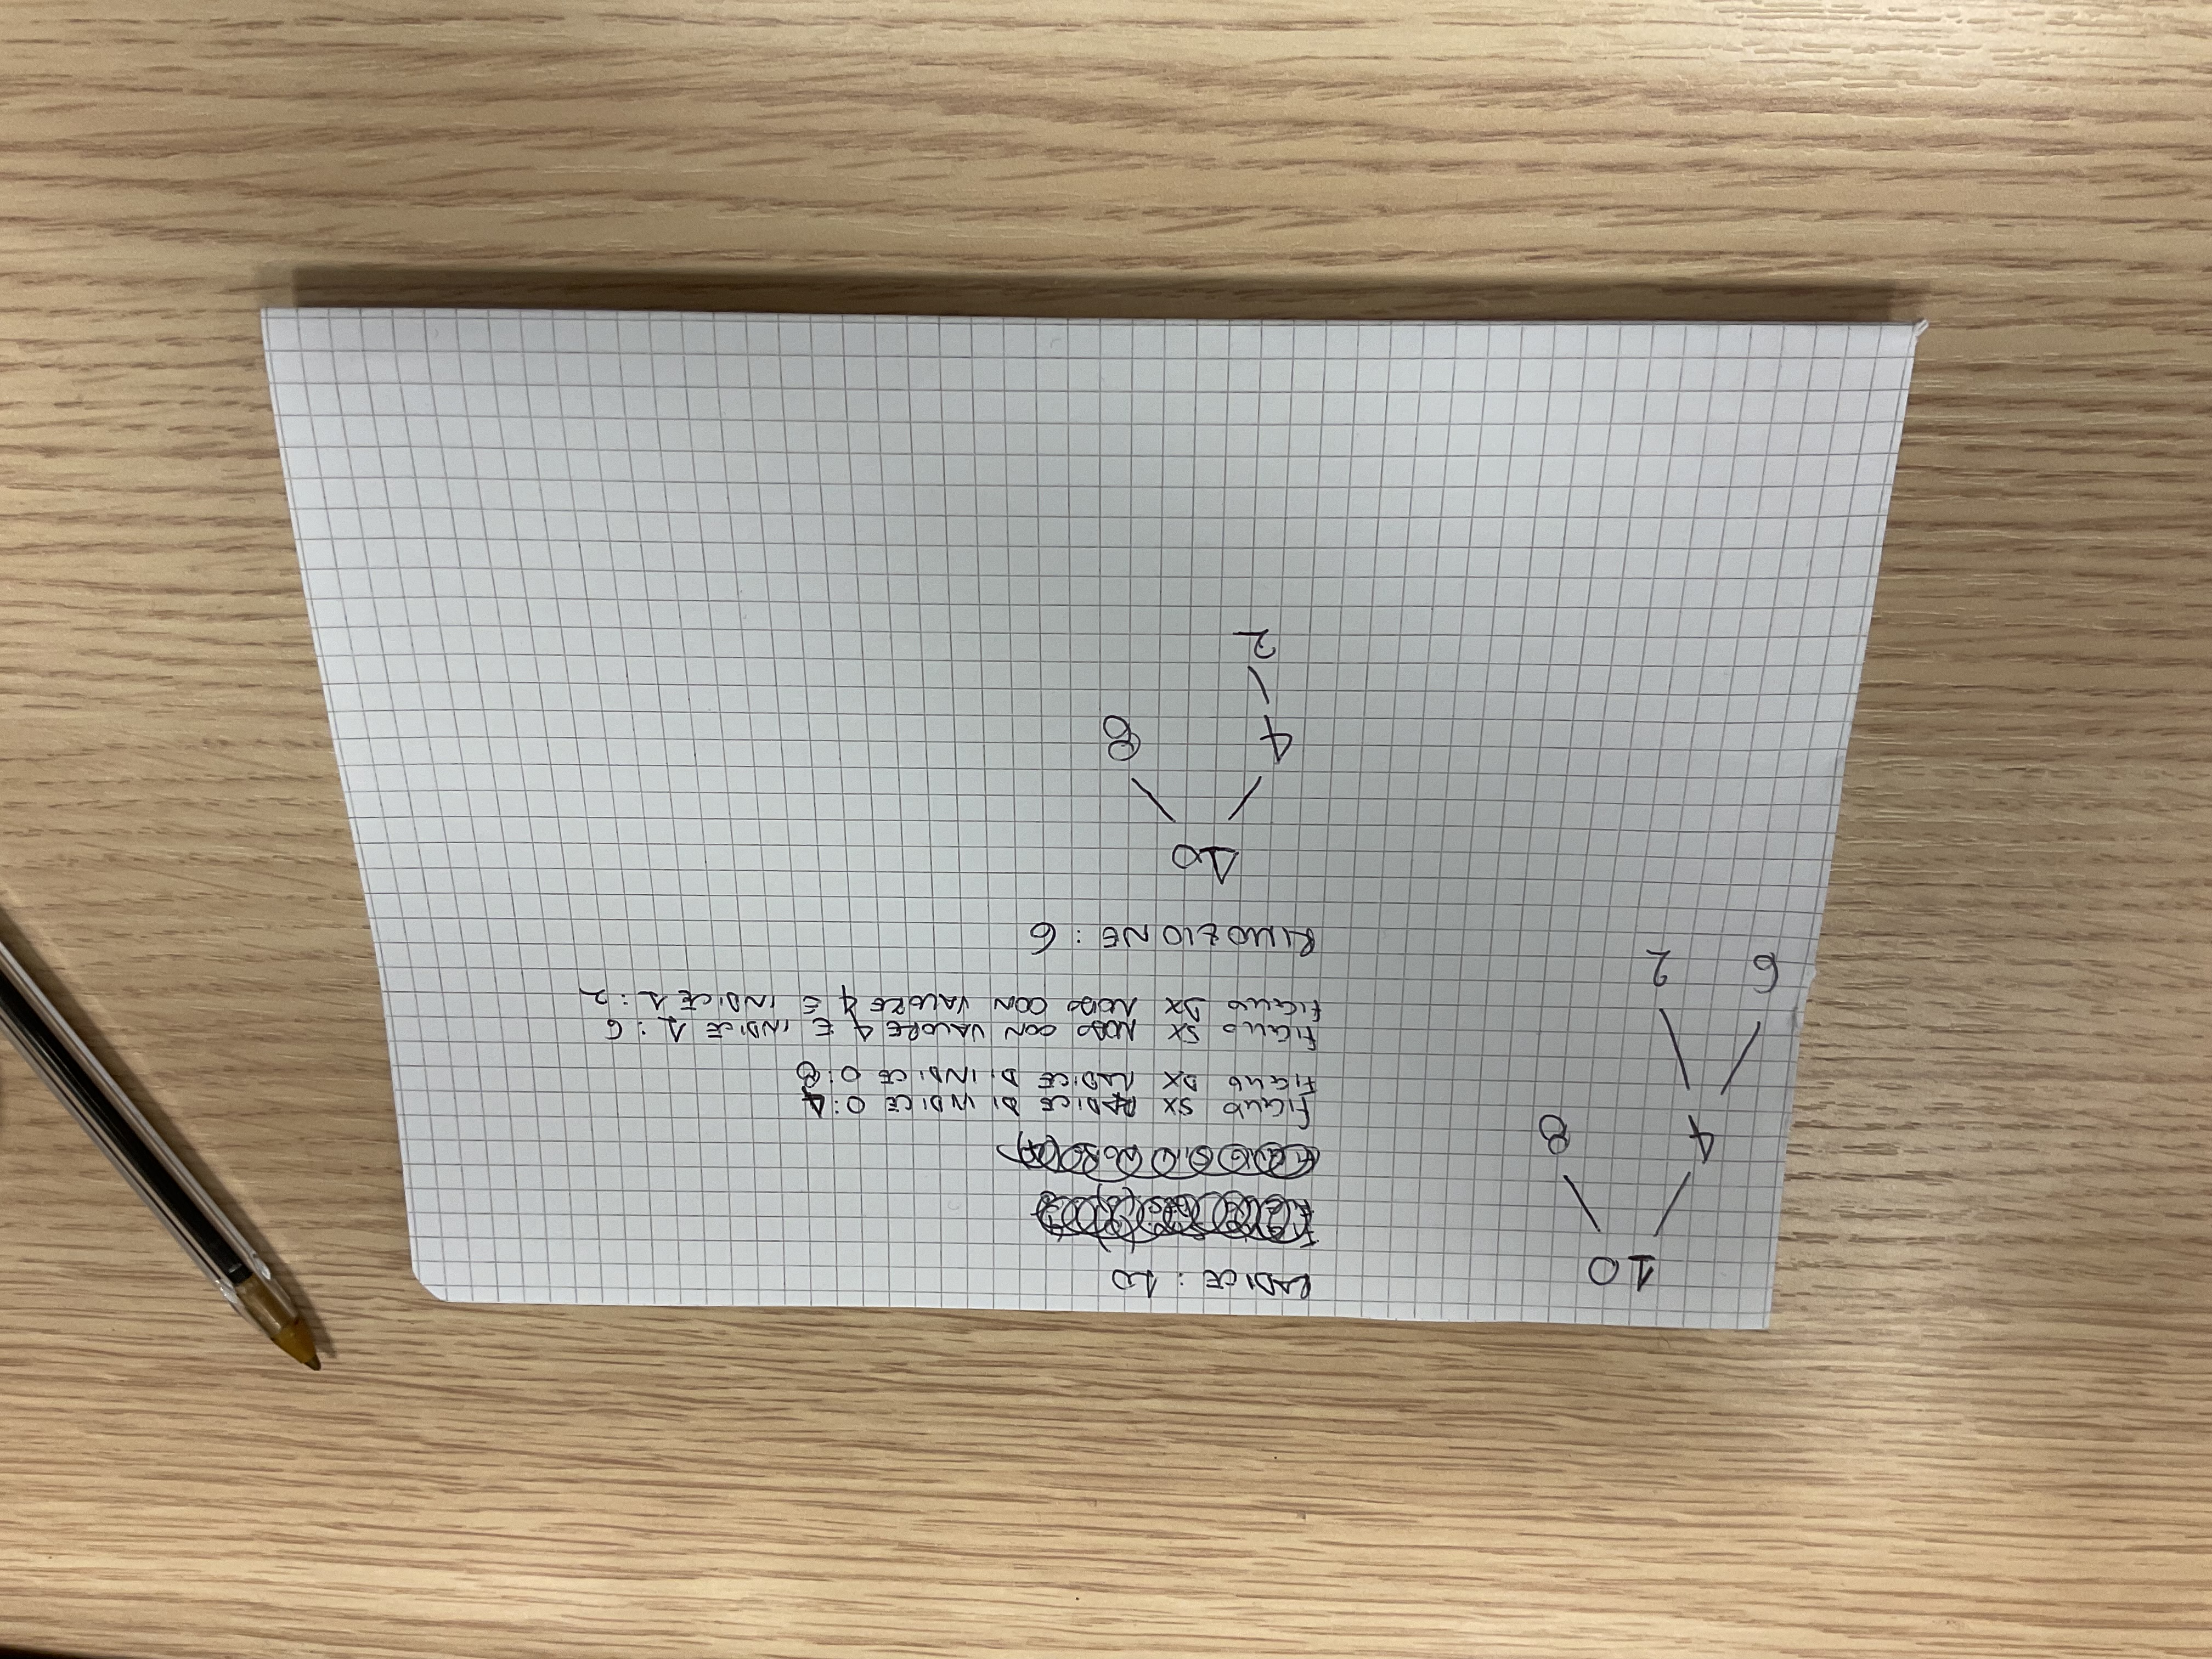 10
4 8
6 2
RADICE : 10
FIGLIO SX RADICE DI INDICE 0:4
FIGLIO DX RADICE DI INDICE 0:8
FIGLIO SX NODO CON VALORE 4 E INDICE 1 : 6
FIGLIO DX NODO CON VALORE 4 E INDICE 1 : 2
RIMOZIONE : 6
10
4 8
2